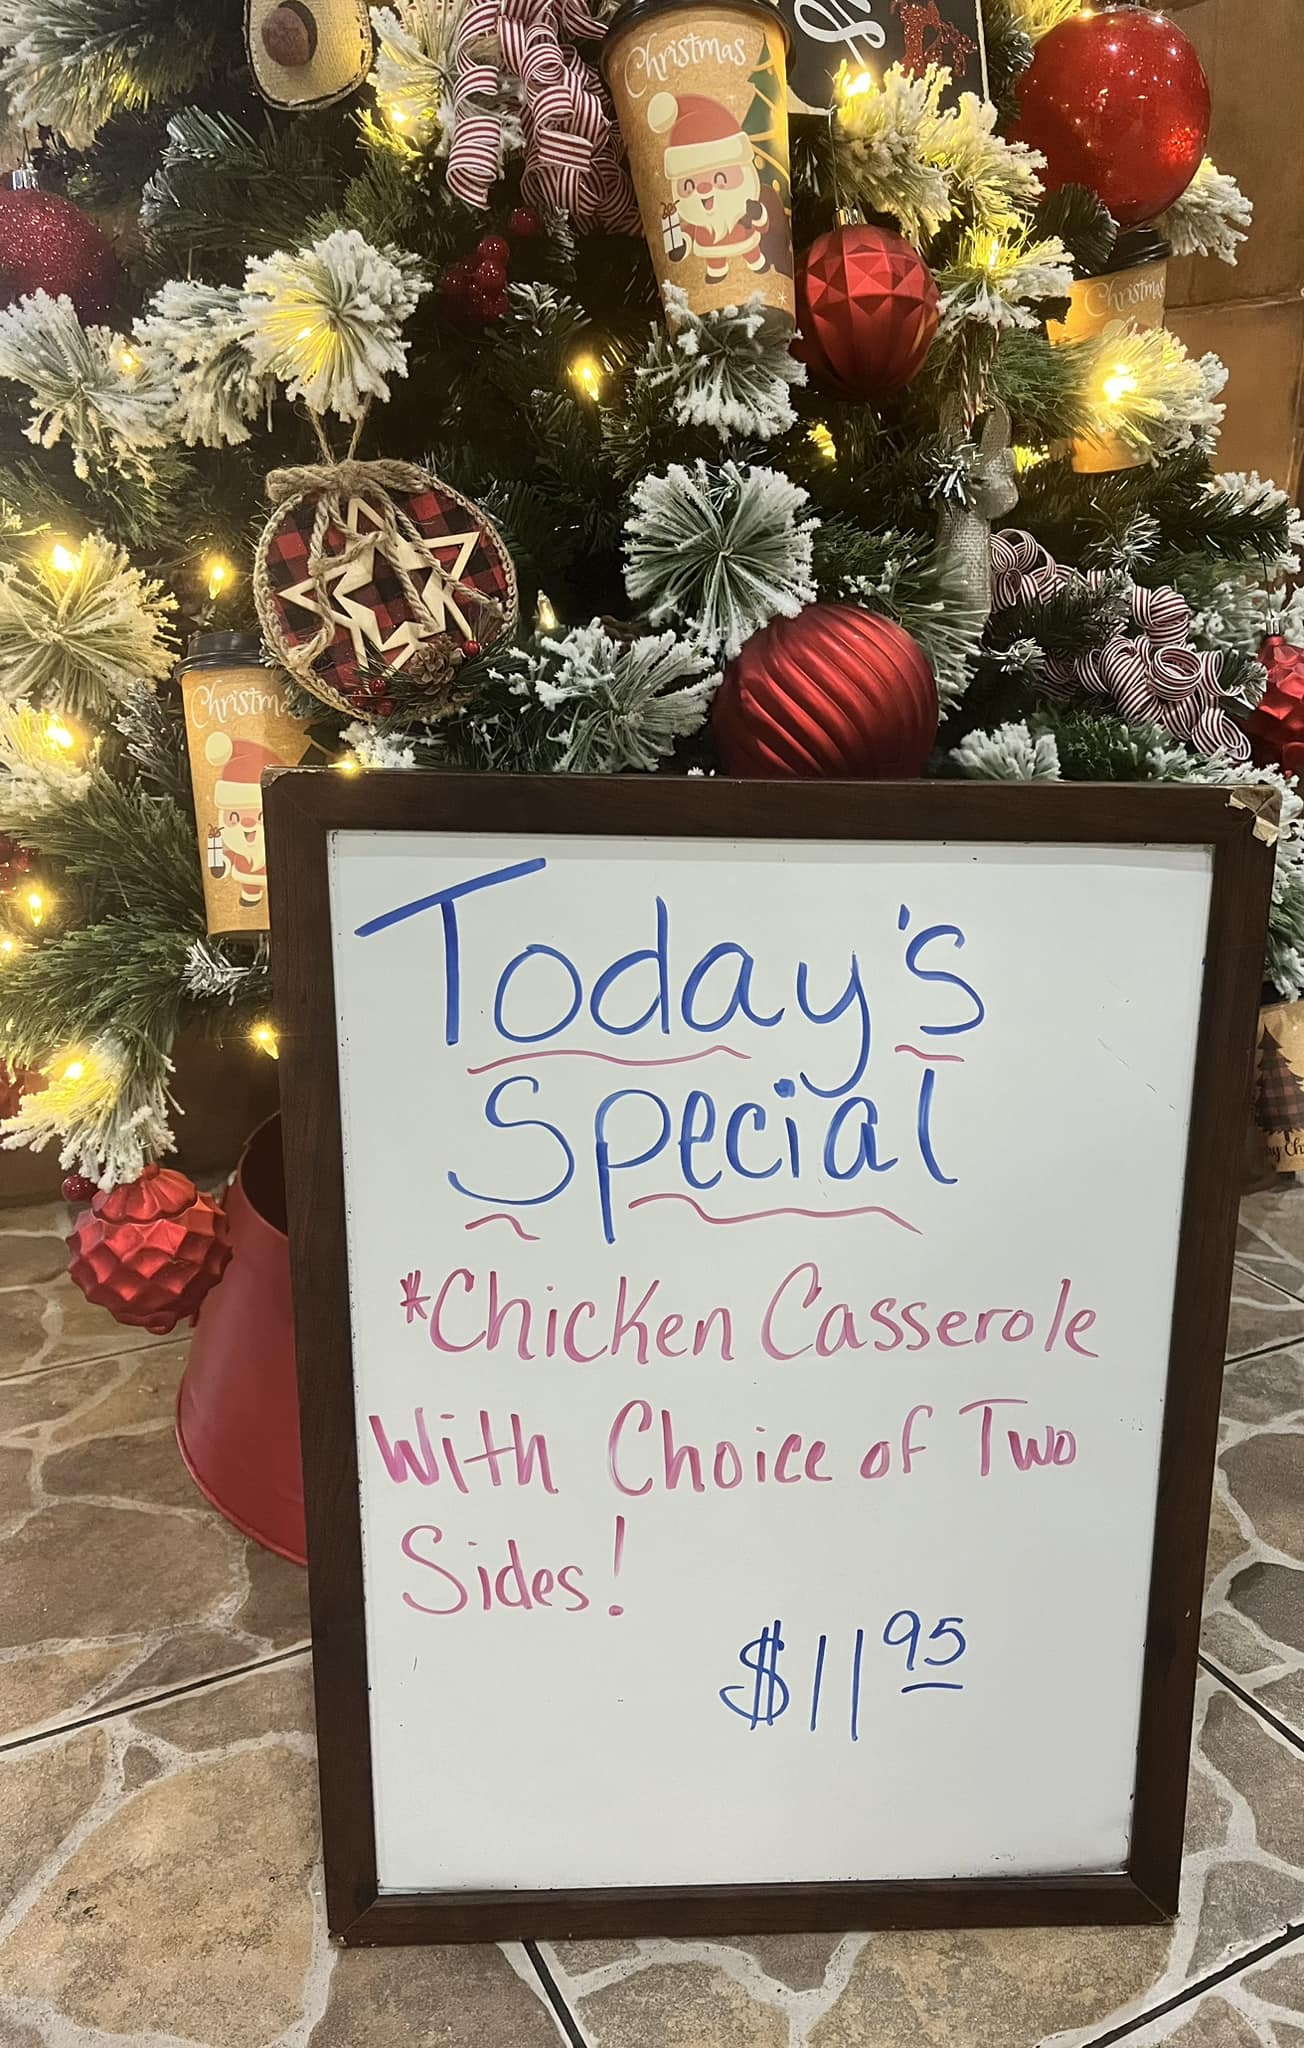 Christmas
Christmas
Christma
Today's
Special
*Chicken Casserole
With Choice of Two
Sides!
$11.95